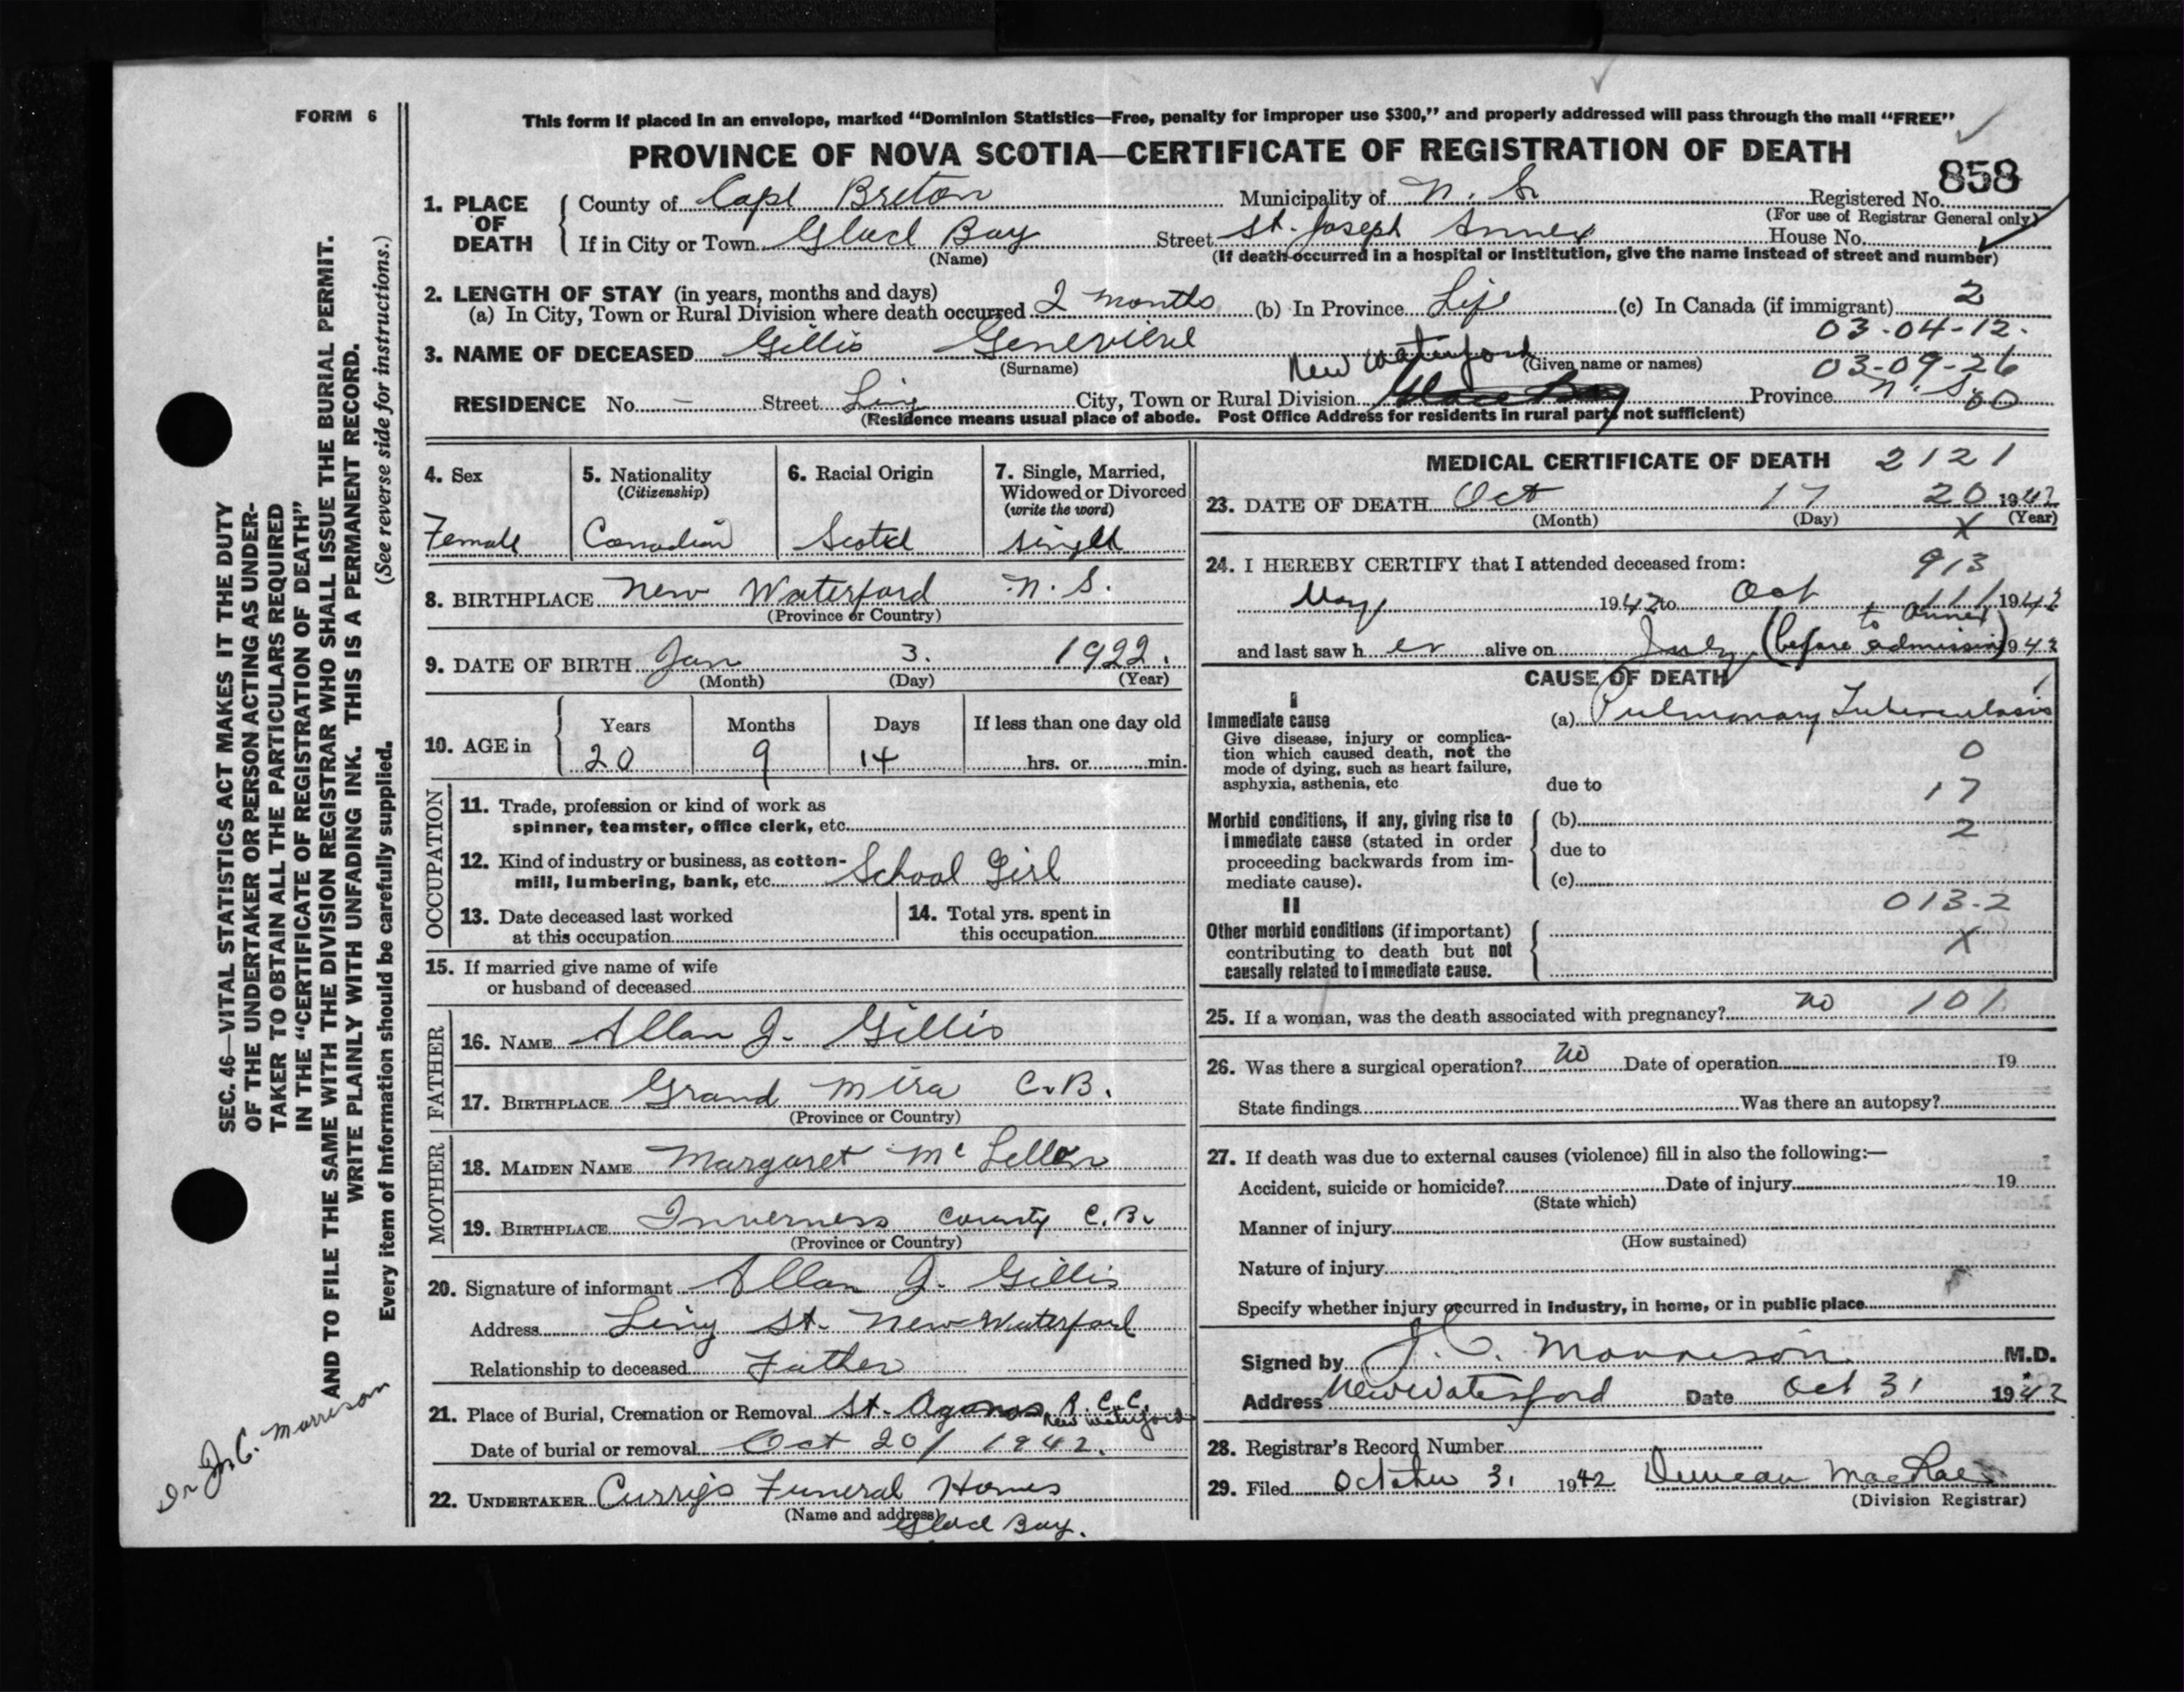 FORM 6
This form if placed in an envelope, marked "Dominion Statistics—Free, penalty for improper use $300," and properly addressed will pass through the mail "FREE"
PROVINCE OF NOVA SCOTIA—CERTIFICATE OF REGISTRATION OF DEATH
858
1. PLACE OF DEATH
County of Cape Breton Municipality of N. S. Registered No.
(For use of Registrar General only)
If in City or Town Glace Bay Street St. Joseph Annex House No.
(Name) (If death occurred in a hospital or institution, give the name instead of street and number)
2. LENGTH OF STAY (in years, months and days)
(a) In City, Town or Rural Division where death occurred 2 months (b) In Province Life (c) In Canada (if immigrant) 2
03-04-12.
3. NAME OF DECEASED Gillis Genevieve
(Surname) (Given name or names) 03-09-26
New Waterford
RESIDENCE No. — Street Ling City, Town or Rural Division Glace Bay Province N. S. 00
(Residence means usual place of abode. Post Office Address for residents in rural parts not sufficient)
4. Sex
Female
5. Nationality
(Citizenship)
Canadian
6. Racial Origin
Scotch
7. Single, Married,
Widowed or Divorced
(write the word)
single
8. BIRTHPLACE New Waterford N. S.
(Province or Country)
9. DATE OF BIRTH Jan 3. 1922.
(Month) (Day) (Year)
10. AGE in
Years Months Days If less than one day old
20 9 14 hrs. or min.
OCCUPATION
11. Trade, profession or kind of work as
spinner, teamster, office clerk, etc.
12. Kind of industry or business, as cotton-
mill, lumbering, bank, etc. School Girl
13. Date deceased last worked
at this occupation
14. Total yrs. spent in
this occupation
15. If married give name of wife
or husband of deceased
FATHER
16. NAME Allan J. Gillis
17. BIRTHPLACE Grand Mira C.B.
(Province or Country)
MOTHER
18. MAIDEN NAME Margaret McLellan
19. BIRTHPLACE Inverness County C.B.
(Province or Country)
20. Signature of informant Allan J. Gillis
Address Ling St. New Waterford
Relationship to deceased Father
21. Place of Burial, Cremation or Removal St. R. C. C.
New Waterford
Date of burial or removal Oct 20/ 1942.
22. UNDERTAKER Currys Funeral Homes
(Name and address)
Glace Bay.
MEDICAL CERTIFICATE OF DEATH 2121
23. DATE OF DEATH Oct 17 20 1942
(Month) (Day) X (Year)
24. I HEREBY CERTIFY that I attended deceased from: 913
May 1942 to Oct 111 1942
and last saw her alive on July (before admission to Annex) 1942
CAUSE OF DEATH
I
Immediate cause
Give disease, injury or complica-
tion which caused death, not the
mode of dying, such as heart failure,
asphyxia, asthenia, etc
(a) Pulmonary Tuberculosis
0
due to
17
Morbid conditions, if any, giving rise to
immediate cause (stated in order
proceeding backwards from im-
mediate cause).
(b)
2
due to
(c)
II
013-2
Other morbid conditions (if important)
contributing to death but not
causally related to immediate cause.
X
25. If a woman, was the death associated with pregnancy? no 101
26. Was there a surgical operation? no Date of operation 19
State findings Was there an autopsy?
27. If death was due to external causes (violence) fill in also the following:—
Accident, suicide or homicide? Date of injury 19
(State which)
Manner of injury
(How sustained)
Nature of injury
Specify whether injury occurred in industry, in home, or in public place
Signed by J. C. Morrison M.D.
Address New Waterford Date Oct 31 1942
28. Registrar's Record Number
29. Filed October 31 1942 Duncan MacRae
(Division Registrar)
SEC. 46—VITAL STATISTICS ACT MAKES IT THE DUTY
OF THE UNDERTAKER OR PERSON ACTING AS UNDER-
TAKER TO OBTAIN ALL THE PARTICULARS REQUIRED
IN THE "CERTIFICATE OF REGISTRATION OF DEATH"
AND TO FILE THE SAME WITH THE DIVISION REGISTRAR WHO SHALL ISSUE THE BURIAL PERMIT.
WRITE PLAINLY WITH UNFADING INK. THIS IS A PERMANENT RECORD.
Every item of information should be carefully supplied. (See reverse side for instructions.)
Dr J. C. Morrison